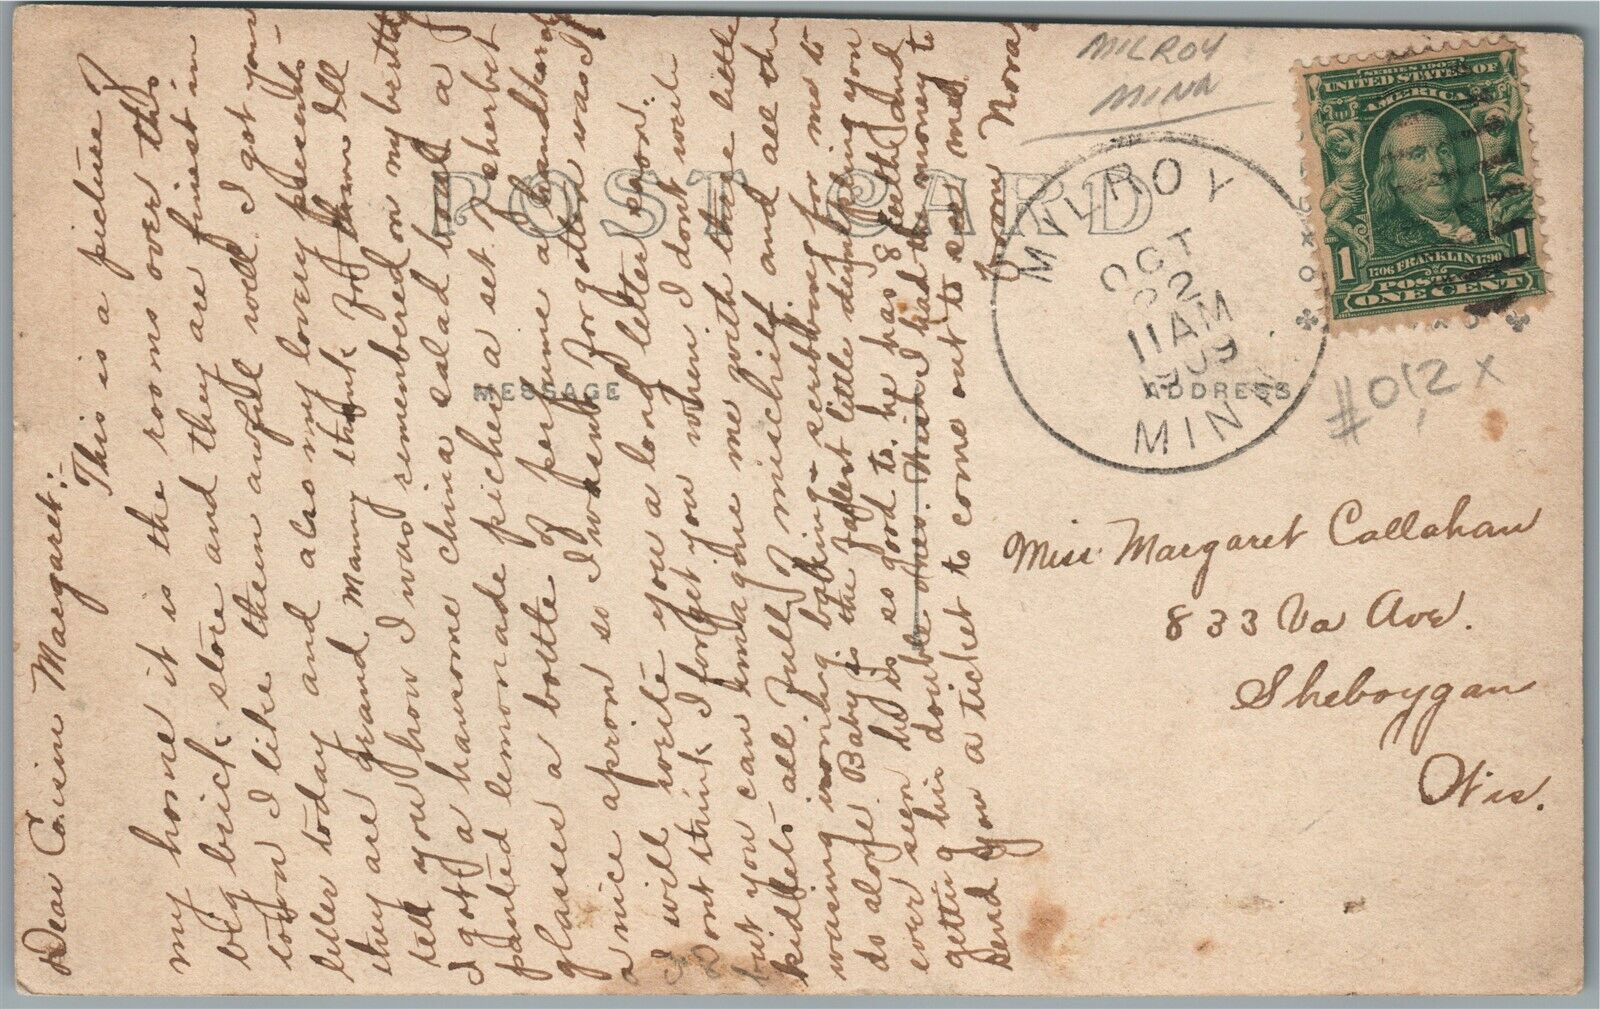 Dear Cosine Margaret:-
This is a picture of
my home it is the rooms over this
big brick store and they are finest in
town I like them awfull well I got your
letter today and also my lovely presents
they are grand Many thank for them Ill
tell you how I was remembered on my birthday
I got a hansome china salad bowl a
painted lemonade picher a set of sherbet
glasses a bottle of perfume a handkercheif
a nice apron so I wasnt forgotten was I
I will write you a long letter soon.
Dont think I forget you when I dont write
but you can imagine me with three little
kidlets all full of mischief and all the
wasing ironing baking scrubbing for me to
do alone Baby is the fatest little dumpling you
ever seen he is so good to, he has 8 teeth and
getting his double ones. Wish I had the money to
send you a ticket to come out to see me.
from Nora
POST CARD
MESSAGE
ADDRESS
MILROY
MINN
MILROY
OCT
22
11 AM
1909
MINN.
SERIES 1902
UNITED STATES OF
AMERICA
1706 FRANKLIN 1790
1 1
POSTAGE
ONE CENT
#012x
Miss Margaret Callahan
833 Va Ave.
Sheboygan
Wis.